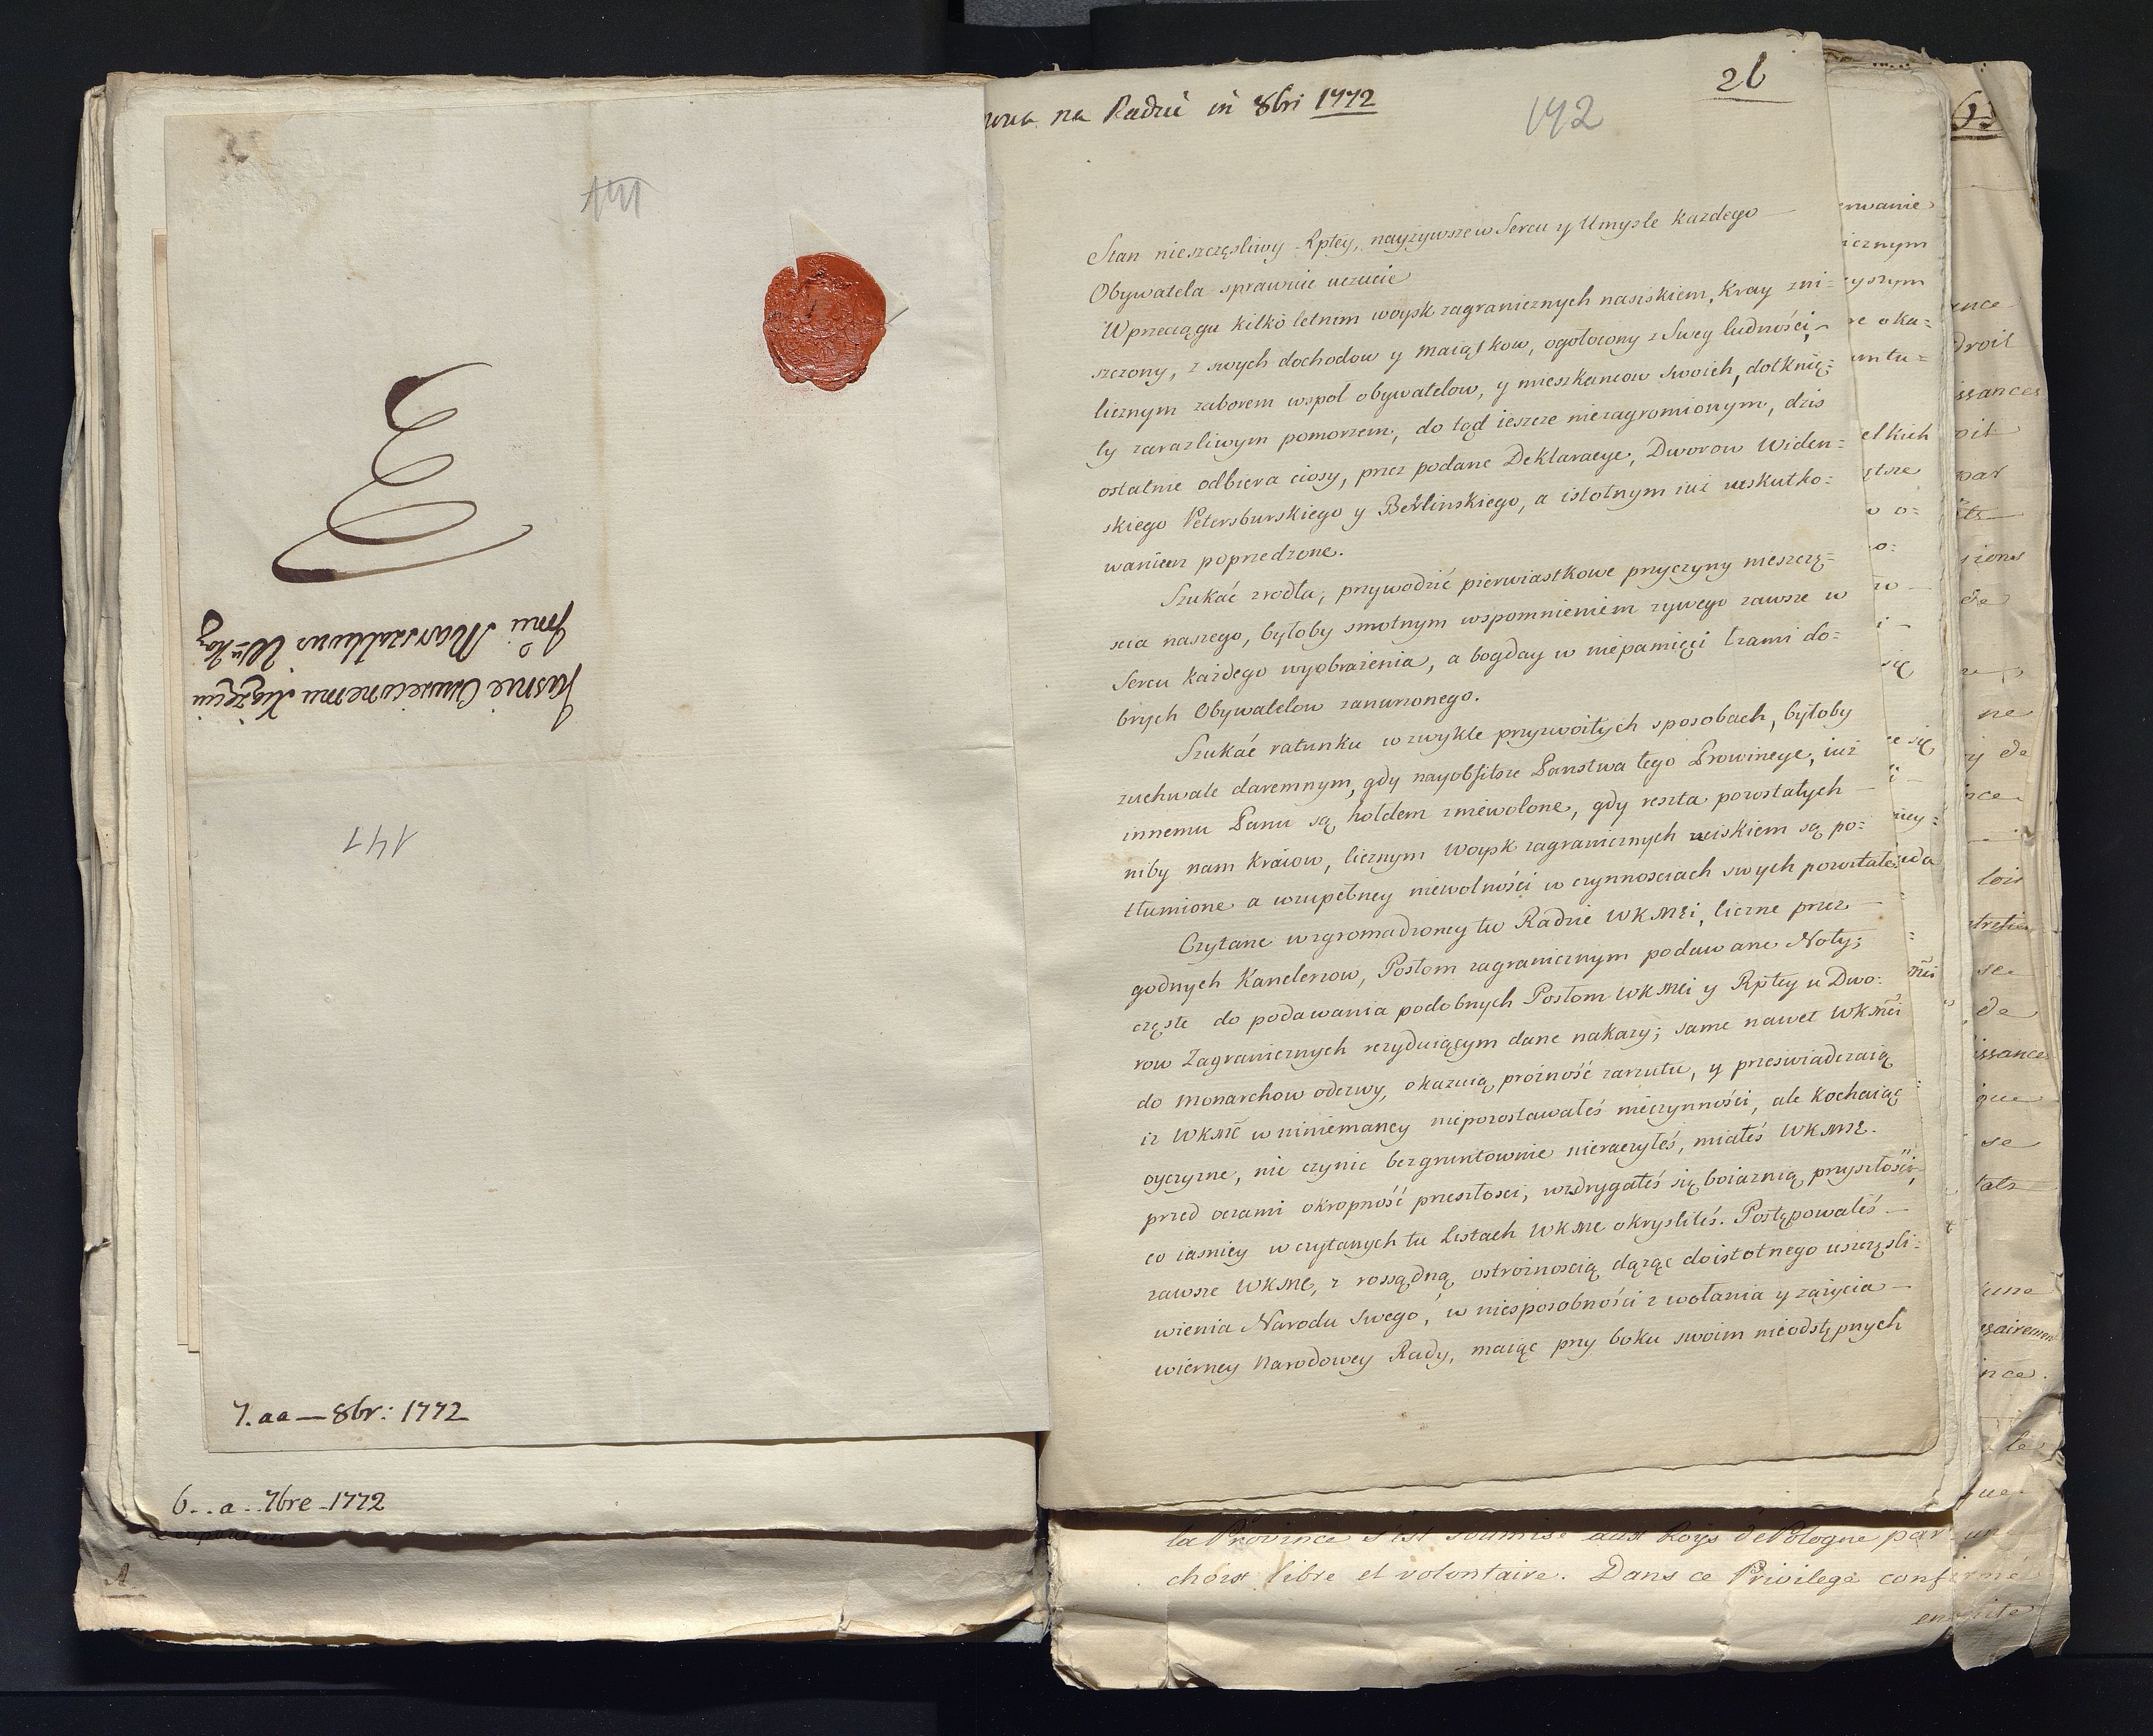 141
Jaśnie Oświeconemu Xiążęciu
Jmci Marszałkowi
141
7. aa — 8br: 1772
6 . . a . . 7bre - 1772
A.
na Radzie in 8bri 1772
142
26
Stan nieszczęsliwy Rptey, nayżywsze w Sercu y Umysle każdego
Obywatela sprawuie uczucie
W przeciągu kilko letnim woysk zagranicznych nasiskiem, Kray zni=
szczony, z swych dochodow y maiątkow, ogołocony z Swey ludności,
licznym zaborem wspoł obywatelow, y mieszkancow swoich, dotknię=
ty zarazliwym pomorzem, do tąd ieszcze niezagromionym, dzis
ostatnie odbiera ciosy, przez podane Deklaracye, Dworow Widen=
skiego Petersburskiego y Berlinskiego, a istotnym iuż uskutko=
waniem poprzedzone.
Szukać zrodła, przywodzić pierwiastkowe przyczyny nieszczę=
scia naszego, byłoby smotnym wspomnieniem zywego zawsze w
Sercu każdego wyobrażenia, a bogday w niepamięci łzami do=
brych Obywatelow zanurzonego.
Szukać ratunku w zwykle przyzwoitych sposobach, byłoby
zuchwale daremnym, gdy nayobfitsze Panstwa tego Prowincye, iuż
innemu Panu są hołdem zniewolone, gdy reszta pozostałych
niby nam kraiow, licznym Woysk zagranicznych uciskiem są po=
tłumione a w zupełney niewolności w czynnosciach swych pozostałe
Czytane w zgromadzoney tu Radzie WKMci, liczne przez
godnych Kanclerzow, Posłom zagranicznym podawane Noty;
częste do podawania podobnych Posłom WKMci y Rptey u Dwo=
row Zagranicznych rezyduiącym dane nakazy; same nawet WKMci
do Monarchow odezwy, okazuią prożność zarzutu, y przeswiadczaią
iż WKMć w mniemaney niepozostawałeś nieczynności, ale kochaiąc
oyczyznę, nic czynic bezgruntownie nieraczyłeś, miałeś WKMć
przed oczami okropność przeszłosci, wzdrygałeś się boiaznią przyszłości,
co iasniey w czytanych tu Listach WKMć okryśliłeś. Postępowałeś
zawsze WKMć, z rossądną ostrożnoscią dążąc do istotnego uszczęsli=
wienia Narodu Swego, w niesposobności zwołania y zażycia
wierney Narodowey Rady, maiąc przy boku swoim nieodstępnych
la Province s'est soumise aux Roys de Pologne par un
choix libre et volontaire. Dans ce Privilege confirmé
ensuite